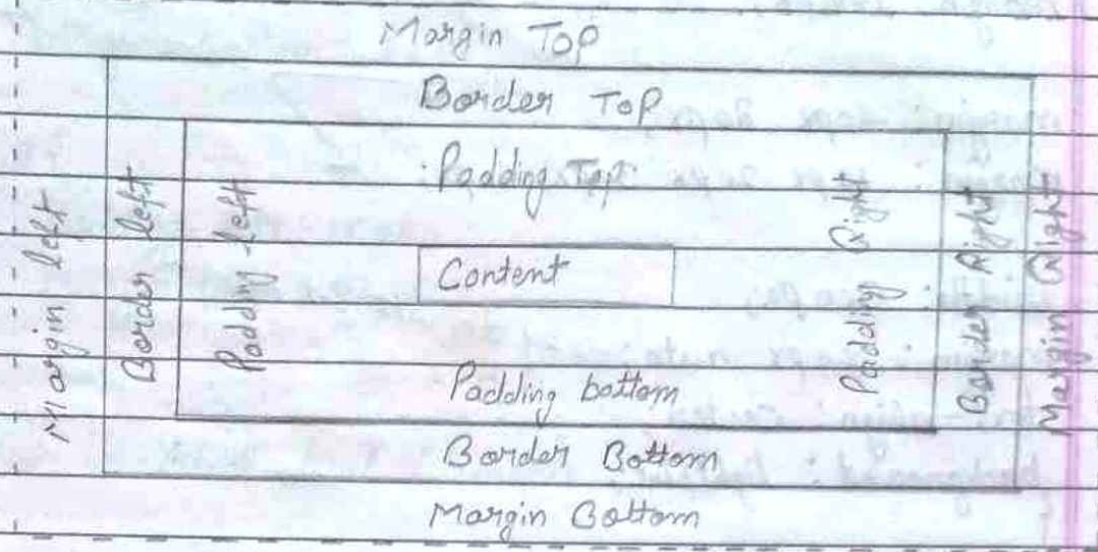 Margin Top
Border Top
Padding Top
Margin left
Border left
Padding left
Content
Padding Right
Border Right
Margin Right
Padding bottom
Border Bottom
Margin Bottom